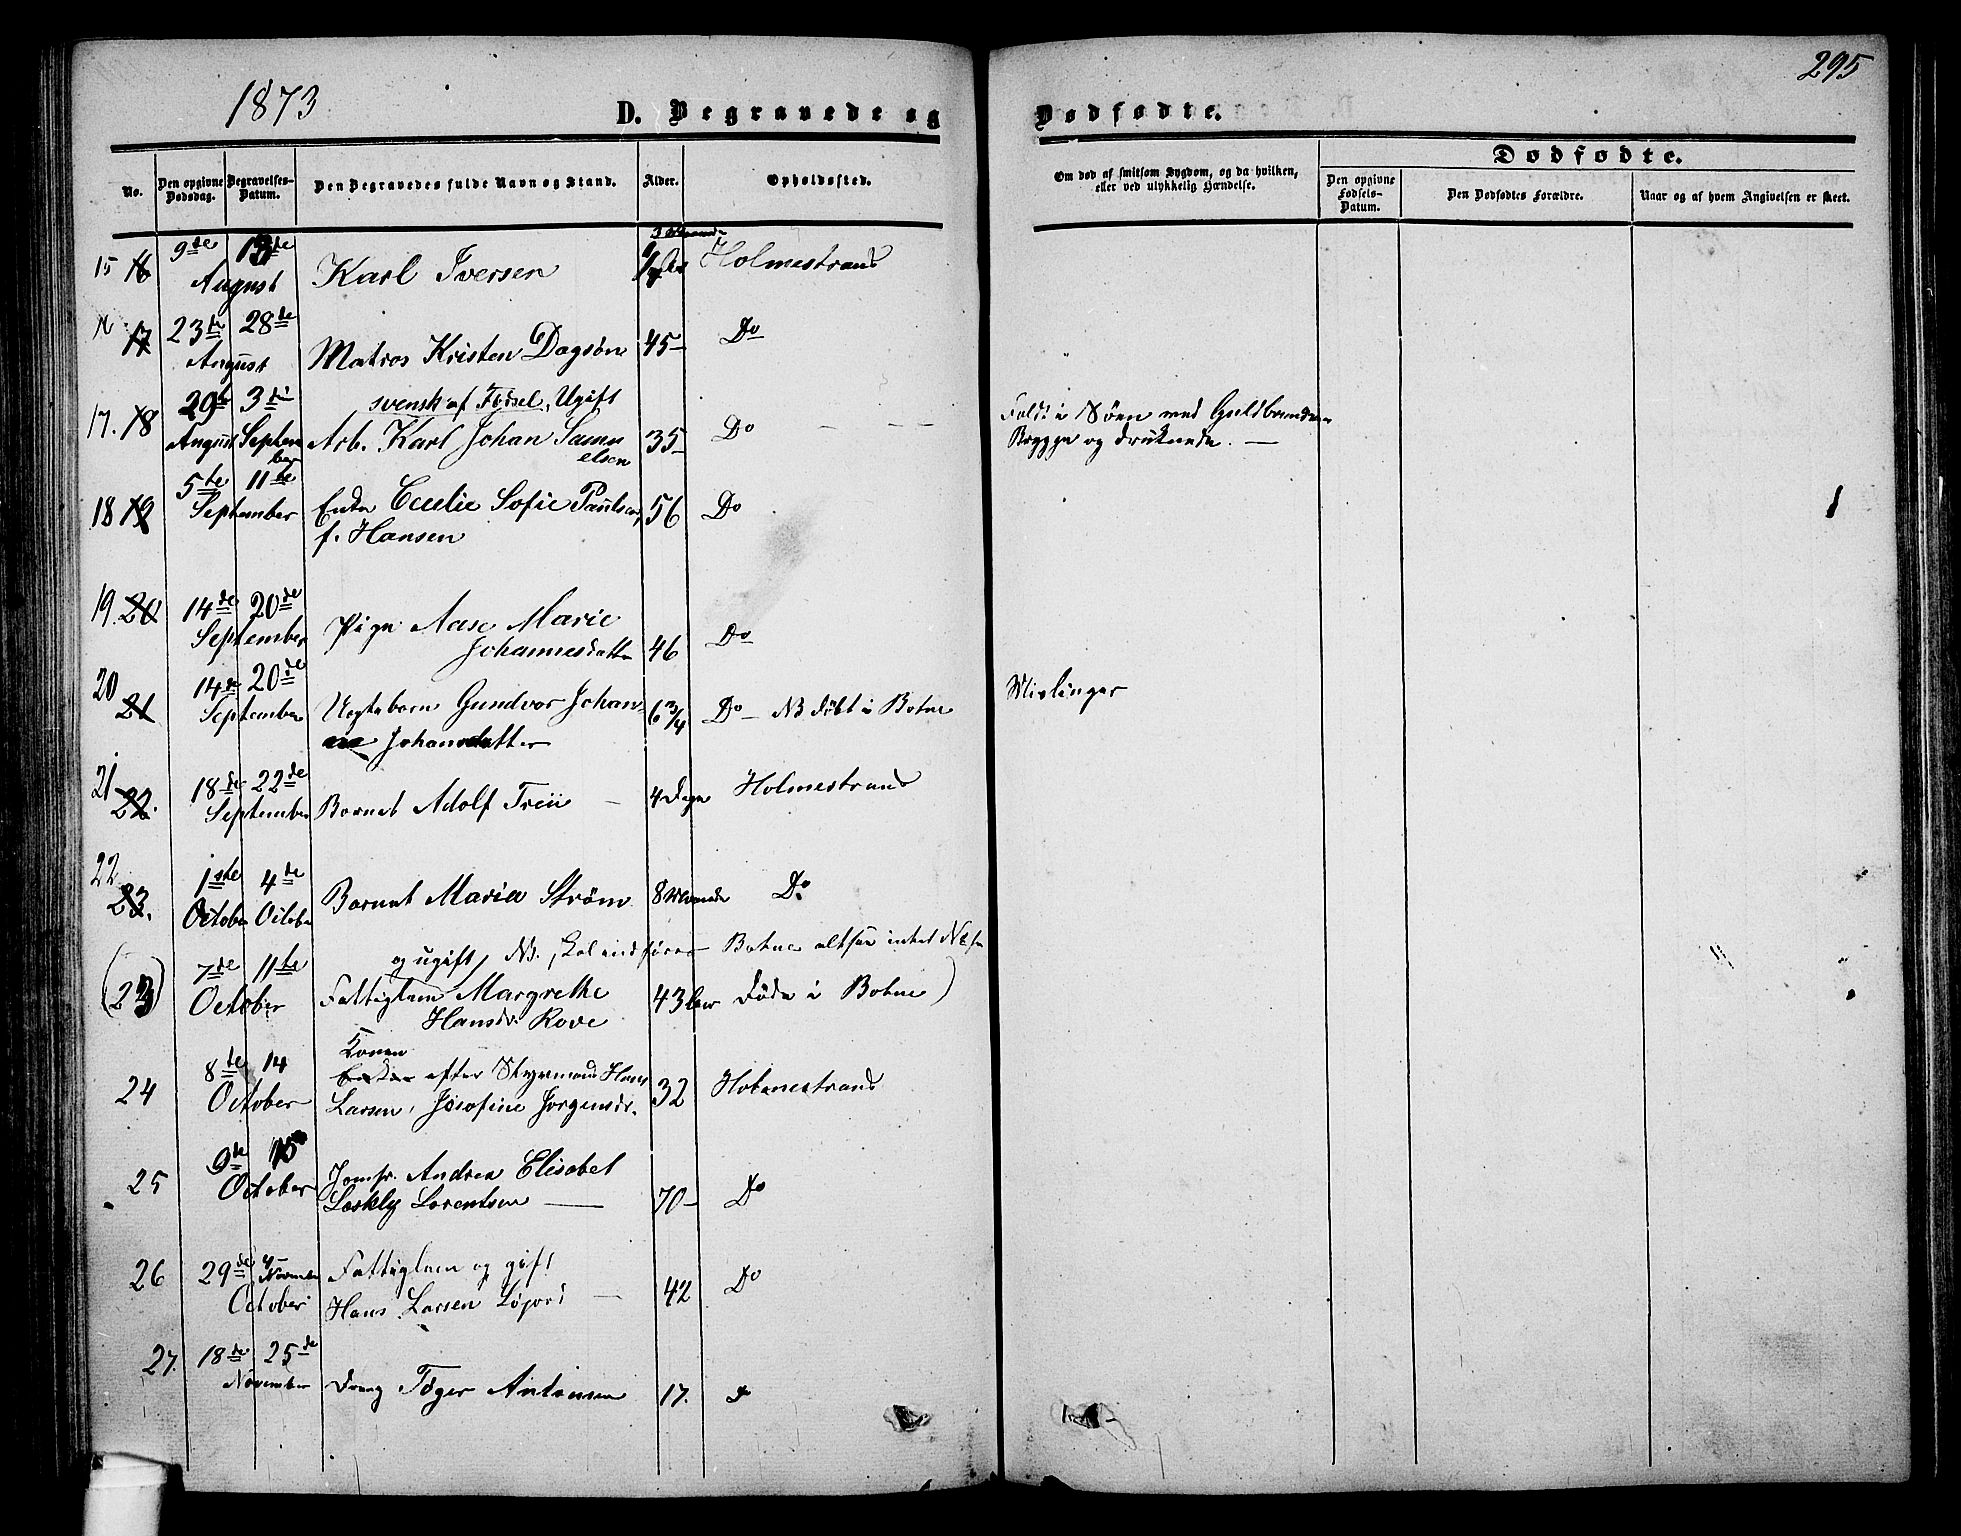 1873
295
D. Begravede og
Dødfødte.
No.
Den opgivne Dødsdag.
Begravelses-Datum.
Den Begravedes fulde Navn og Stand.
Alder.
Opholdssted.
Om død af smitsom Sygdom, og da hvilken,
eller ved ulykkelig Hændelse.
Dødfødte.
Den opgivne Fødsels-Datum.
Den Dødfødtes Forældre.
Naar og af hvem Angivelsen er skeet.
15 16 9de 13de
August Karl Iversen Holmestrand
16 17 23de 28de
August Matros Kristen Dagsøn 45 Do
svensk af Fødsel, Ugift
17. 18 29 3die
August September Arb. Karl Johan Samuelsen 35 Do
Faldt i Søen ved Guldbrandsens
Brygge og druknede.
18 19 5te 11te
September Enke Cecilie Sofie Paulsen, 56 Do
f. Hansen
19. 20 14de 20de
September Pige Aase Marie
Johannesdatter 46 Do
20 21 14de 20de
September Uegtebarn Gundvor Johan-
ne Johansdatter 6 3/4 Do NB døbt i Botne
Meslinger
21 22. 18de 22de
September Barnet Adolf Treu 4 Dage Holmestrand
22 23. 1ste 4de
October October Barnet Maria Strøm 8 Maaneder Do
og ugift, NB, Skal indføres Botne altsaa intet No
(23) 7de 11te
October Fattiglem Margrethe 43 Aar døde i Botne)
Hansdr. Rove
24 8de 14
October Konen
Enken efter Styrmand Hans
Larsen, Josefine Jørgensdr. 32 Holmestrand
25 9de 15
October Jomfr. Andrea Elisabet
Lorentsen 70 Do
26 29de 4 November
October Fattiglem og gift
Hans Larsen 42 Do
27. 18de 25de
November Dreng Tøger Antonsen 17. Do